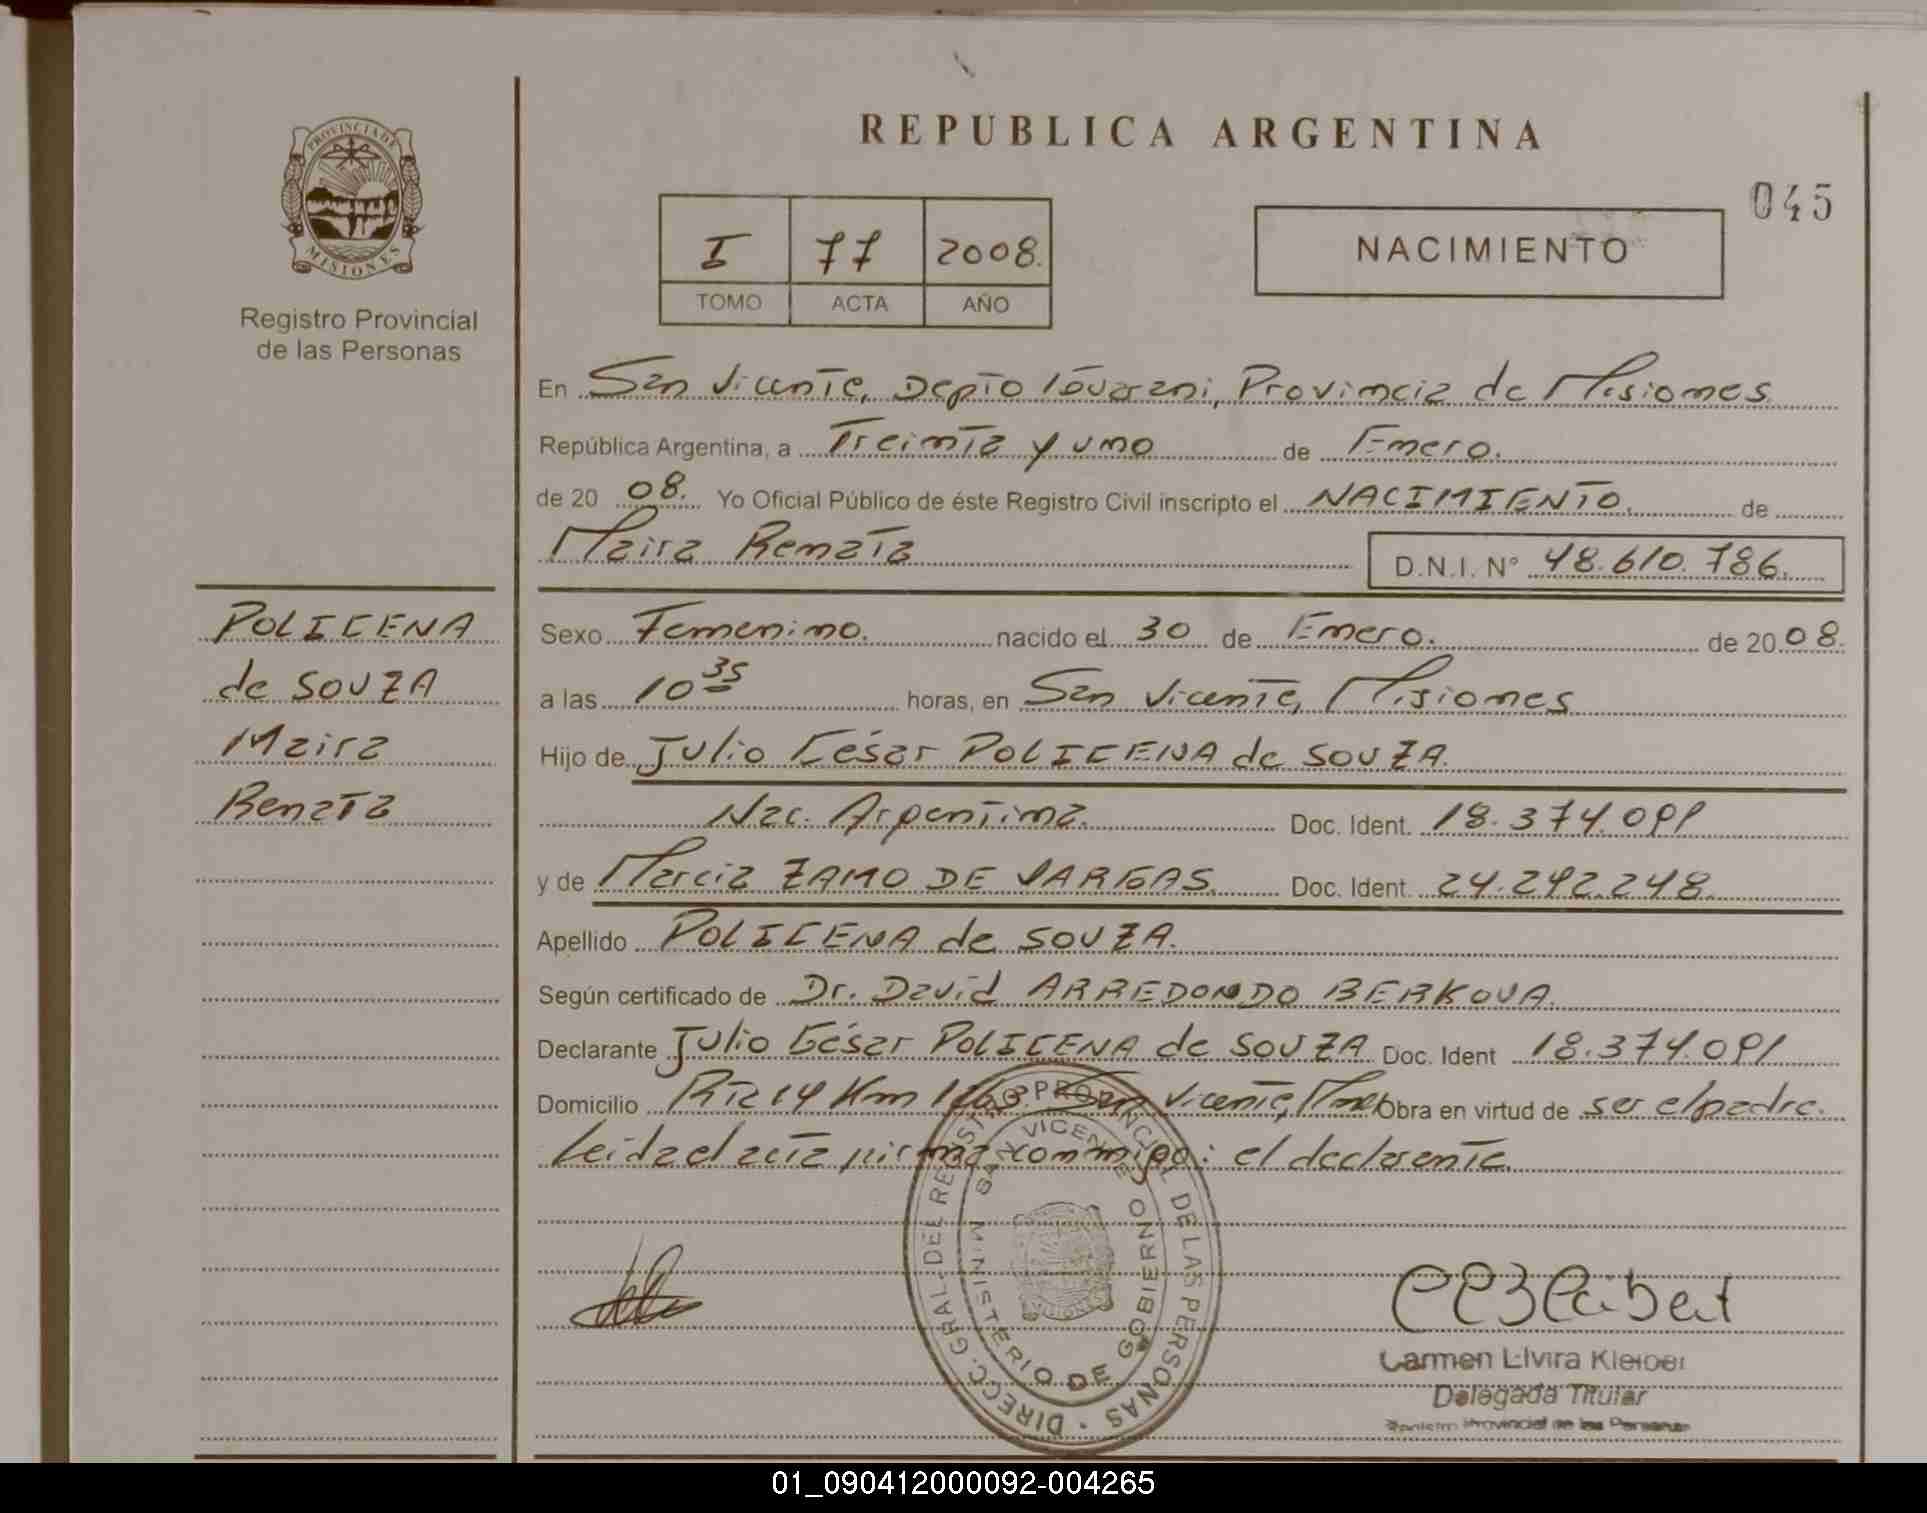 REPUBLICA ARGENTINA
045
PROVINCIA DE
MISIONES
Registro Provincial
de las Personas
I 77 2008.
TOMO ACTA AÑO
NACIMIENTO
En San Vicente, Depto Guaraní, Provincia de Misiones
República Argentina, a Treinta y uno de Enero.
de 20 08. Yo Oficial Público de éste Registro Civil inscripto el NACIMIENTO. de
Maira Renata D.N.I. N° 48.610.786.
POLICENA
de SOUZA
Maira
Renata
Sexo Femenino. nacido el 30 de Enero. de 20 08.
a las 10 35 horas, en San Vicente, Misiones
Hijo de Julio César POLICENA de SOUZA.
Nac. Argentina. Doc. Ident. 18.374.091
y de Marcia ZAMO DE VARGAS. Doc. Ident. 24.292.248.
Apellido POLICENA de SOUZA.
Según certificado de Dr. David ARREDONDO BERKOVA.
Declarante Julio César POLICENA de SOUZA Doc. Ident 18.374.091
Domicilio Rta 14 Km San Vicente, Mnes Obra en virtud de ser el padre.
Leida el acta firma conmigo: el declarante.
DIRECC. GRAL. DEL REGISTRO PROVINCIAL DE LAS PERSONAS
SAN VICENTE
MINISTERIO DE GOBIERNO
MISIONES
Carmen Elvira Kleiber
Delegada Titular
Registro Provincial de las Personas
01_090412000092-004265